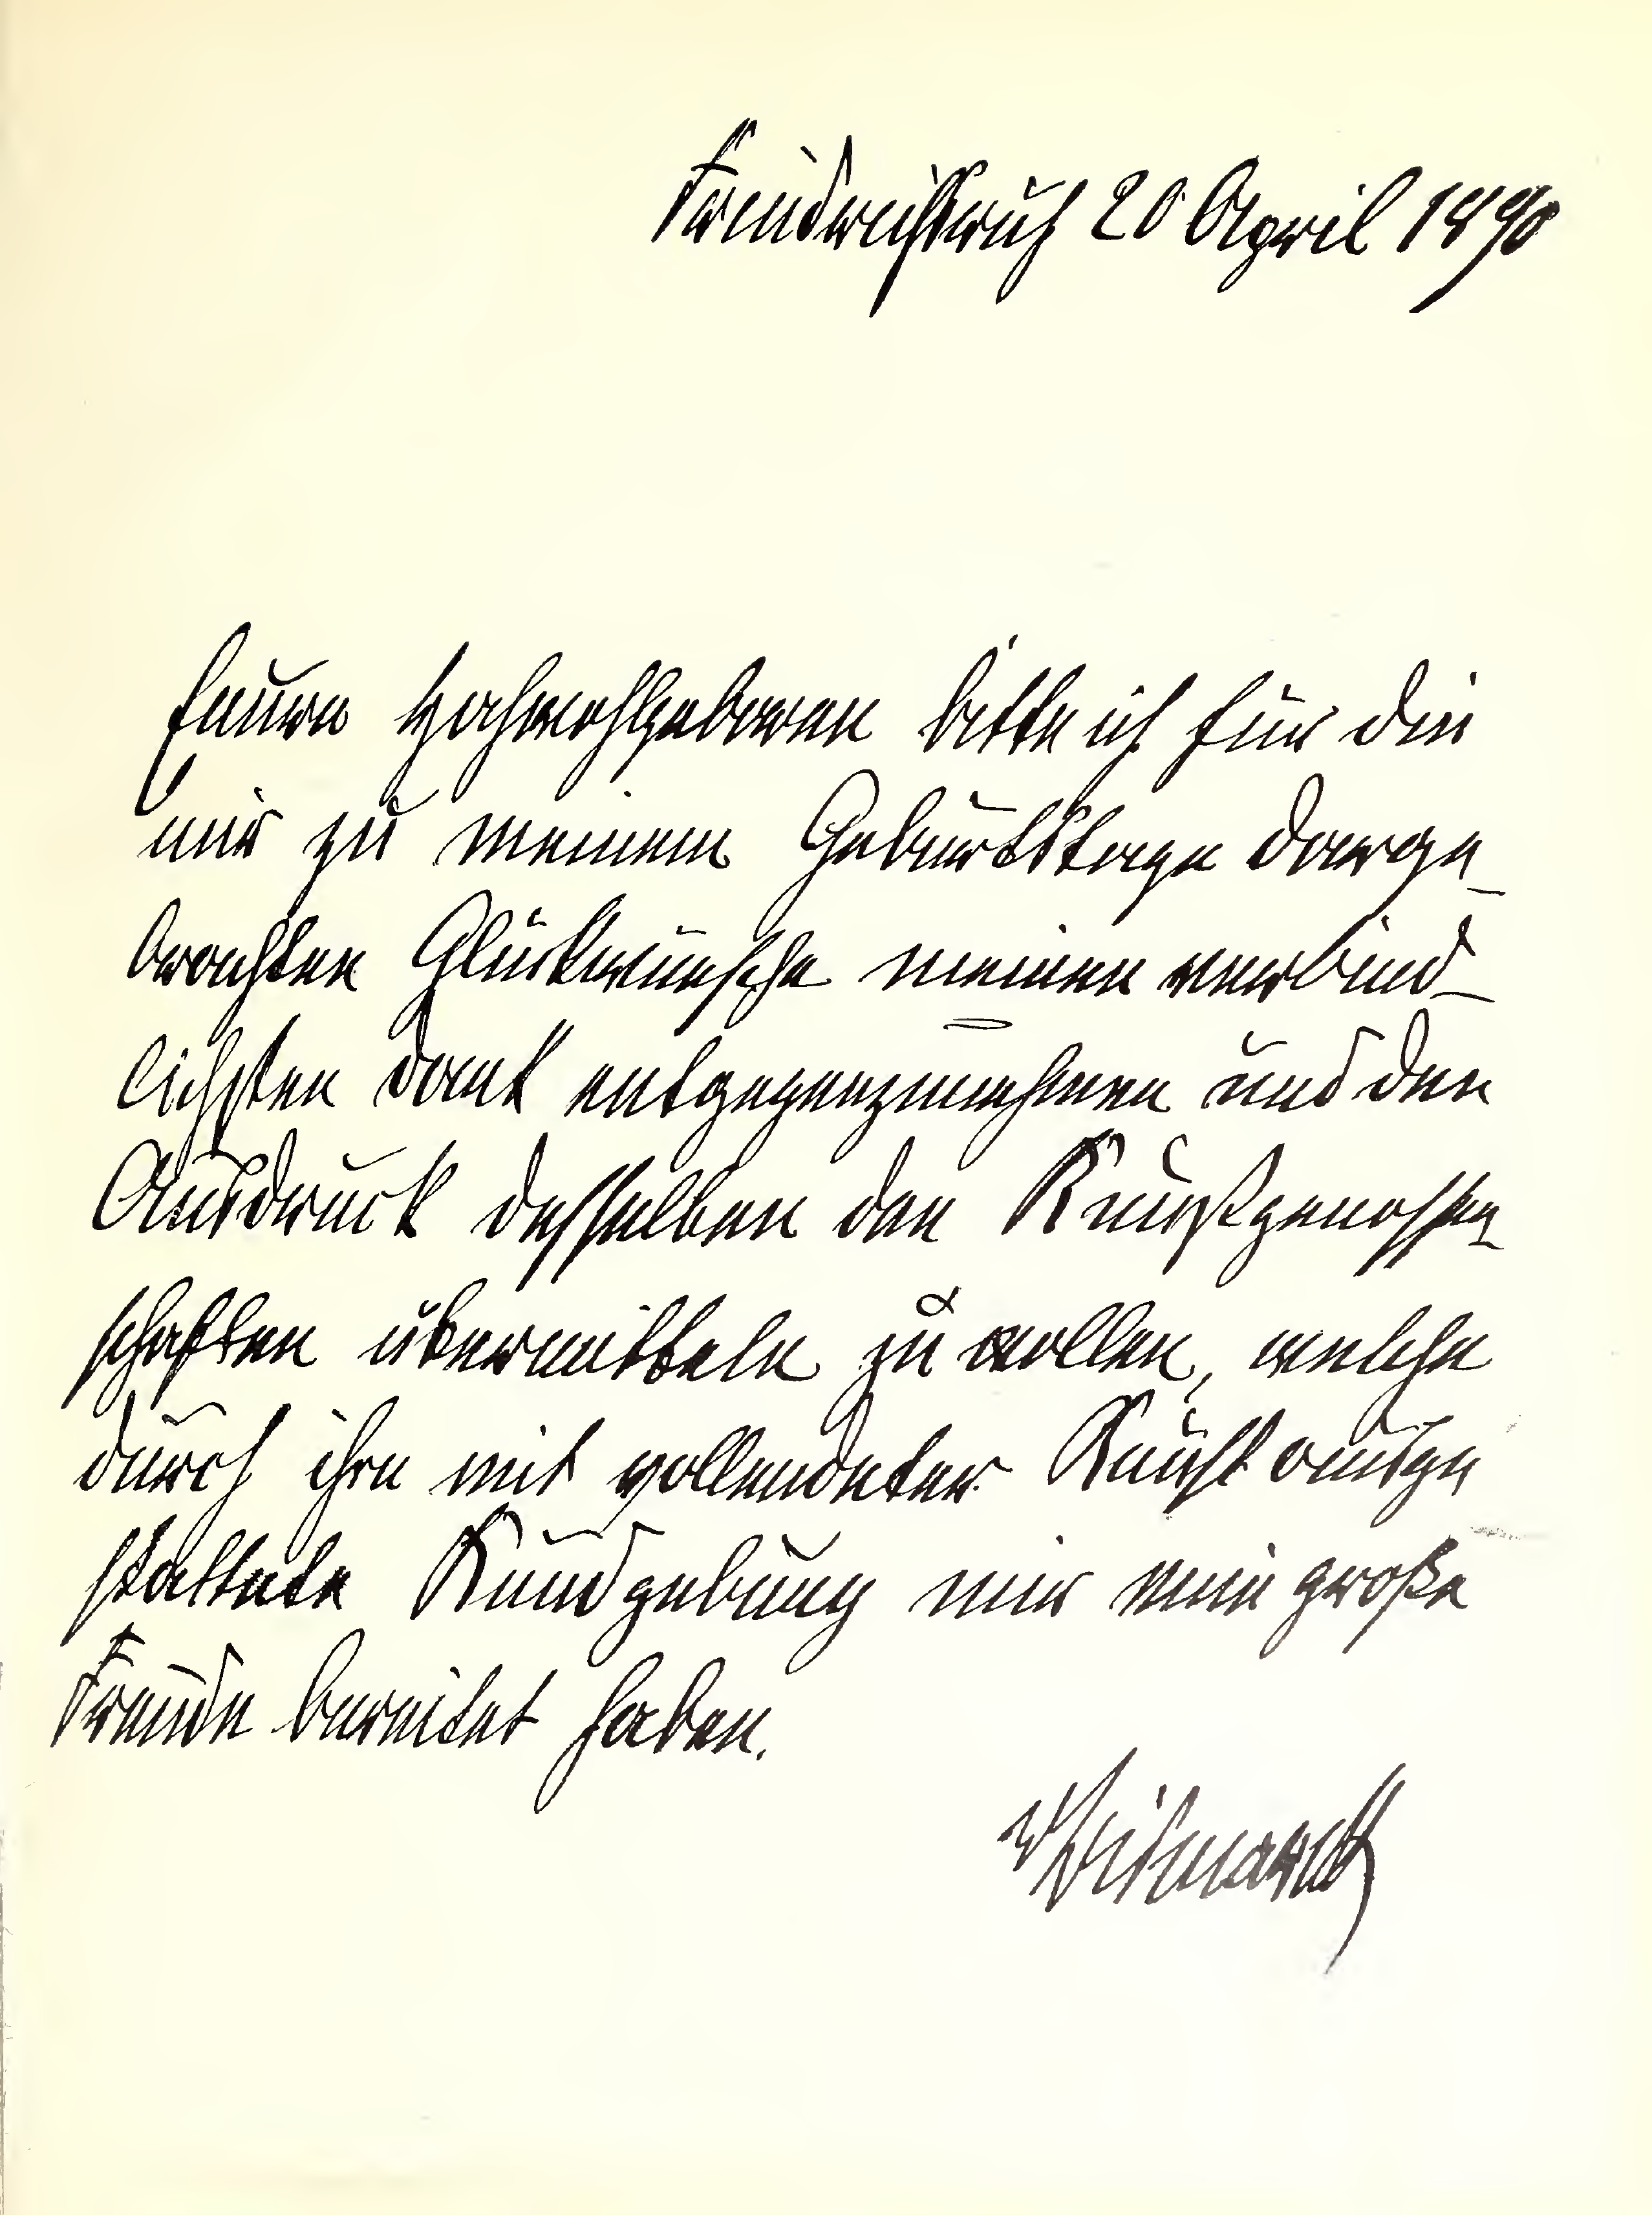 Friedrichsruh 20 April 1890
Euere Hochwohlgeboren bitte ich für die
mir zu meinem Geburtstage darge-
brachten Glückwünsche meinen verbind-
lichsten Dank entgegenzunehmen und den
Ausdruck desselben den Kunstgenossen-
schaften übermitteln zu wollen, welche
durch ihre mit vollendeter Kunst ausge
stattete Kundgebung mir eine große
Freude bereitet haben.
v Bismarck